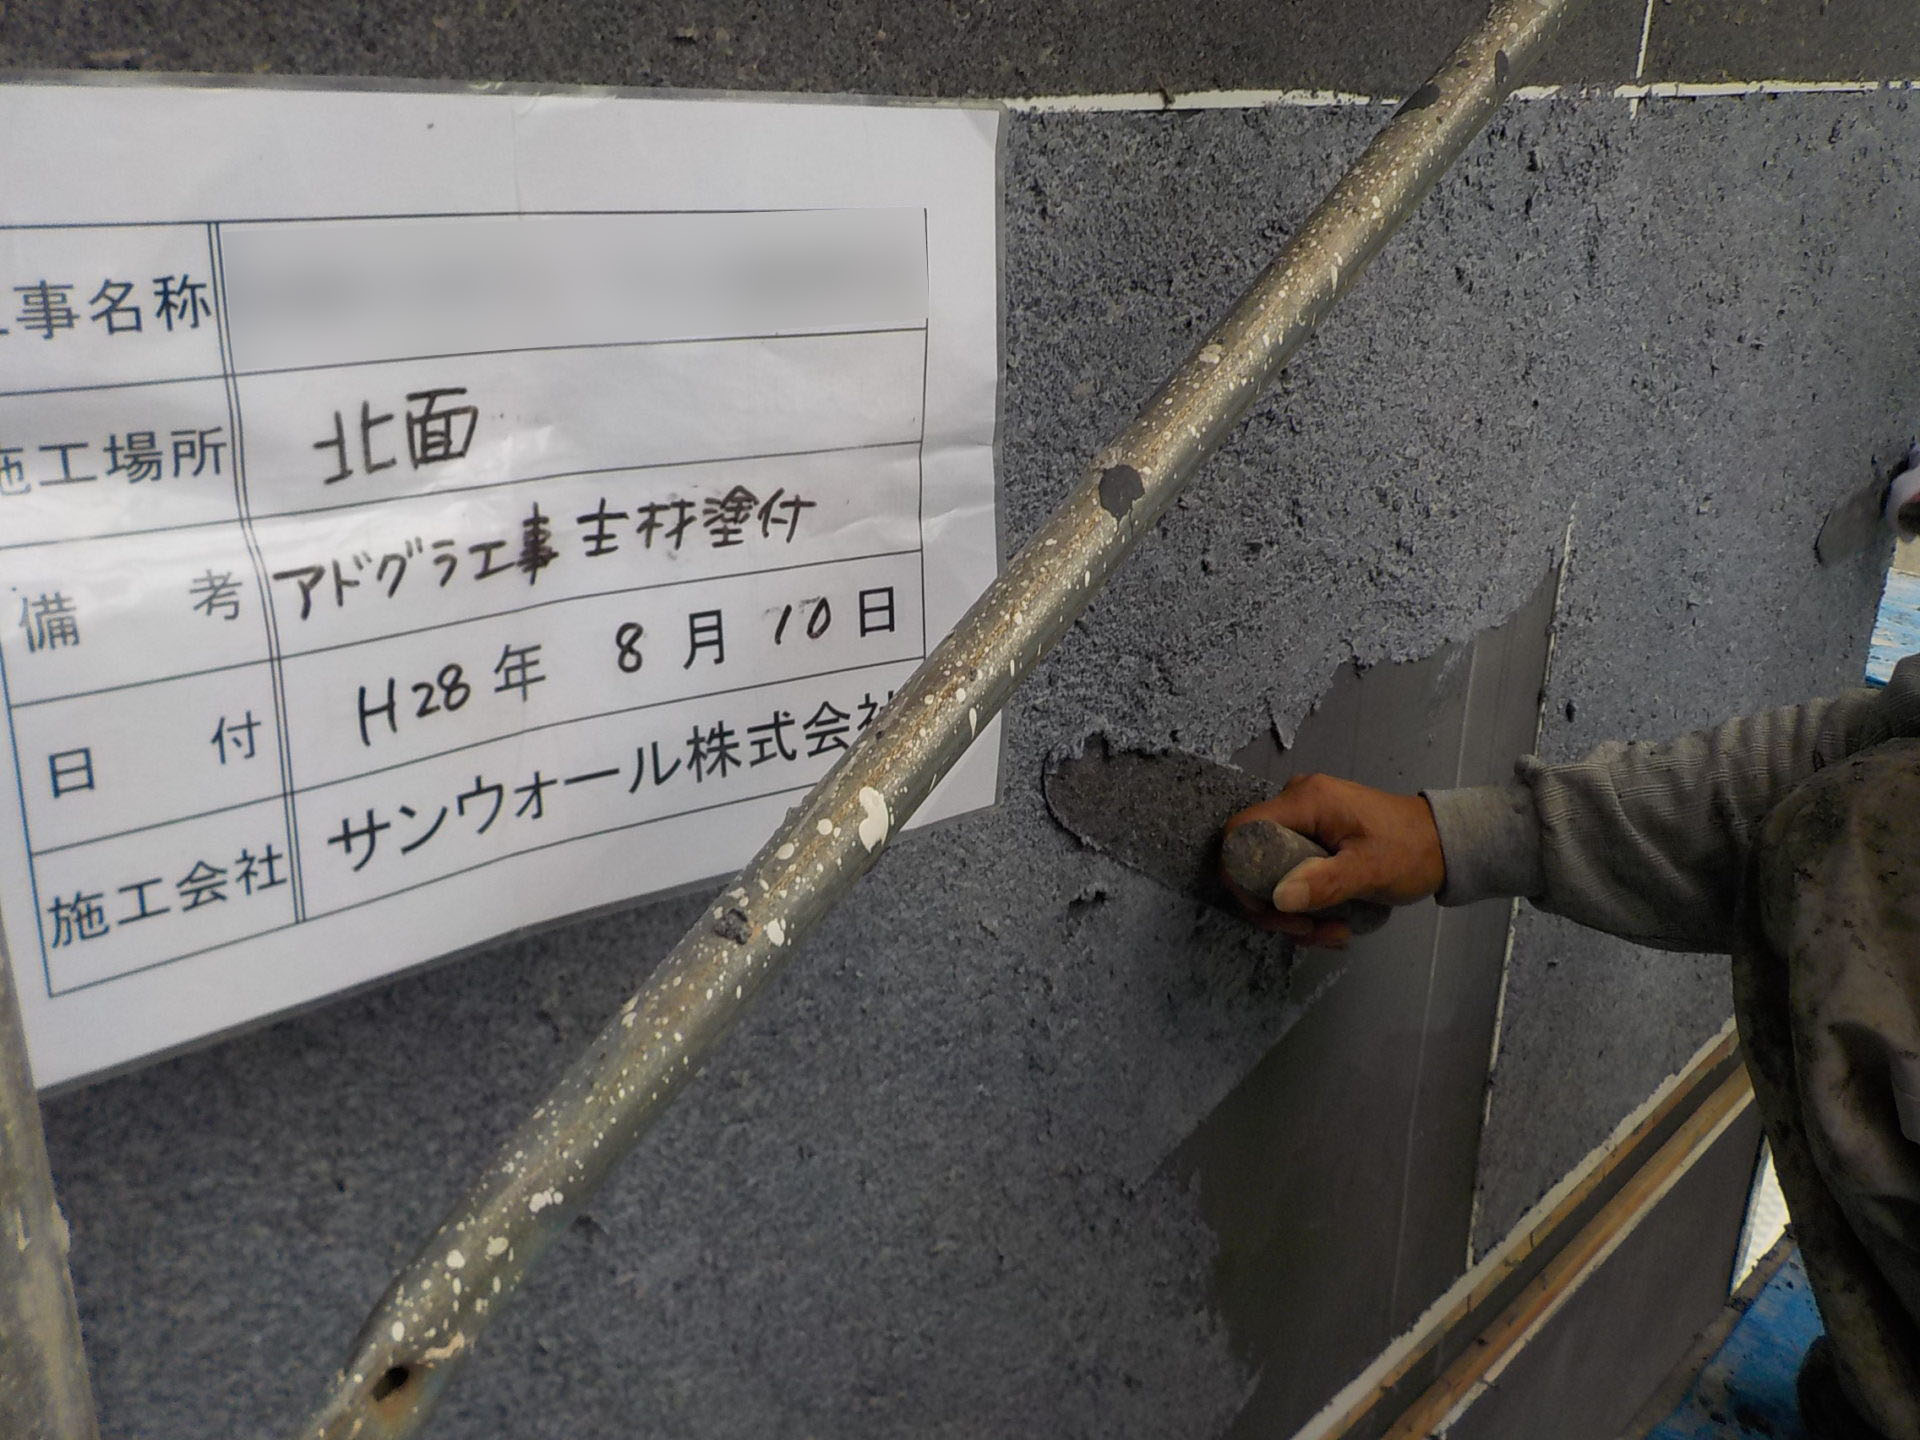 工事名称
施工場所 北面
備考 アドグラ工事 主材塗付
日付 H28年 8月 10日
施工会社 サンウォール株式会社